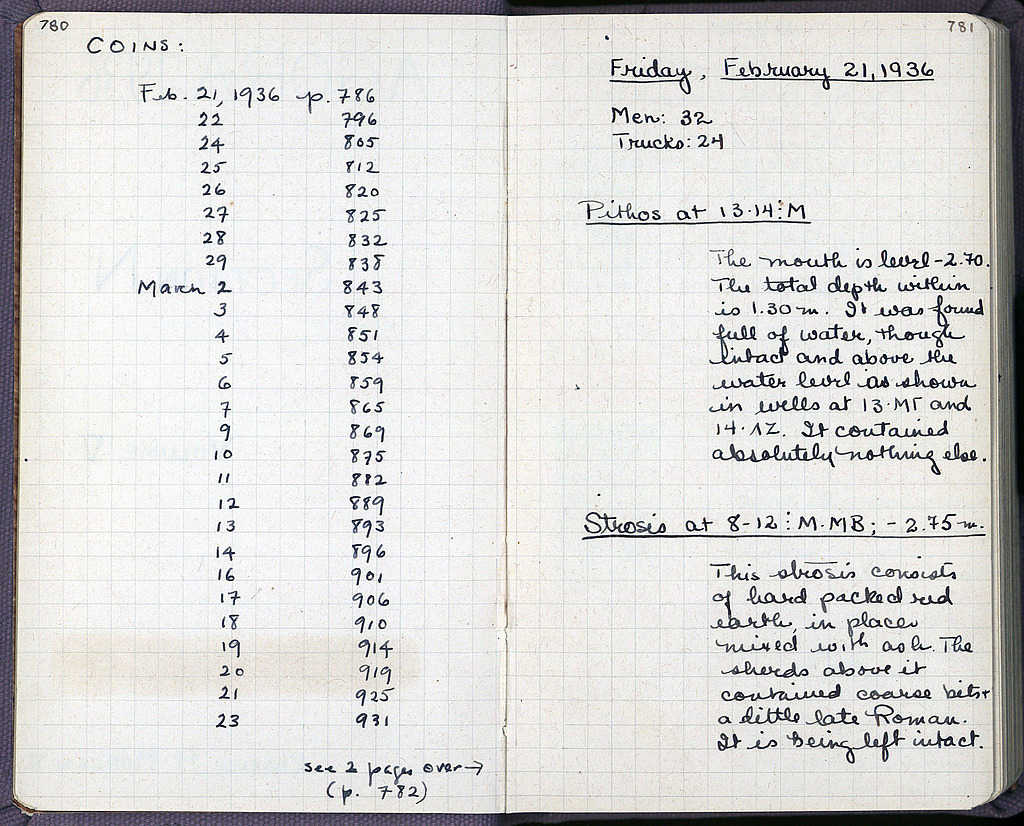 780
COINS:
Feb. 21, 1936 p. 786
22 796
24 805
25 812
26 820
27 825
28 832
29 838
March 2 843
3 848
4 851
5 854
6 859
7 865
9 869
10 875
11 882
12 889
13 893
14 896
16 901
17 906
18 910
19 914
20 919
21 925
23 931
see 2 pages over→
(p. 782)
781
Friday, February 21, 1936
Men: 32
Trucks: 24
Pithos at 13·14:M
The mouth is level -2.70.
The total depth within
is 1.30 m. It was found
full of water, though
intact and above the
water level as shown
in wells at 13·ΜΓ and
14·ΛΖ. It contained
absolutely nothing else.
Strosis at 8-12:M·MB; -2.75 m.
This strosis consists
of hard packed red
earth, in places
mixed with ash. The
sherds above it
contained coarse bits +
a little late Roman.
It is being left intact.